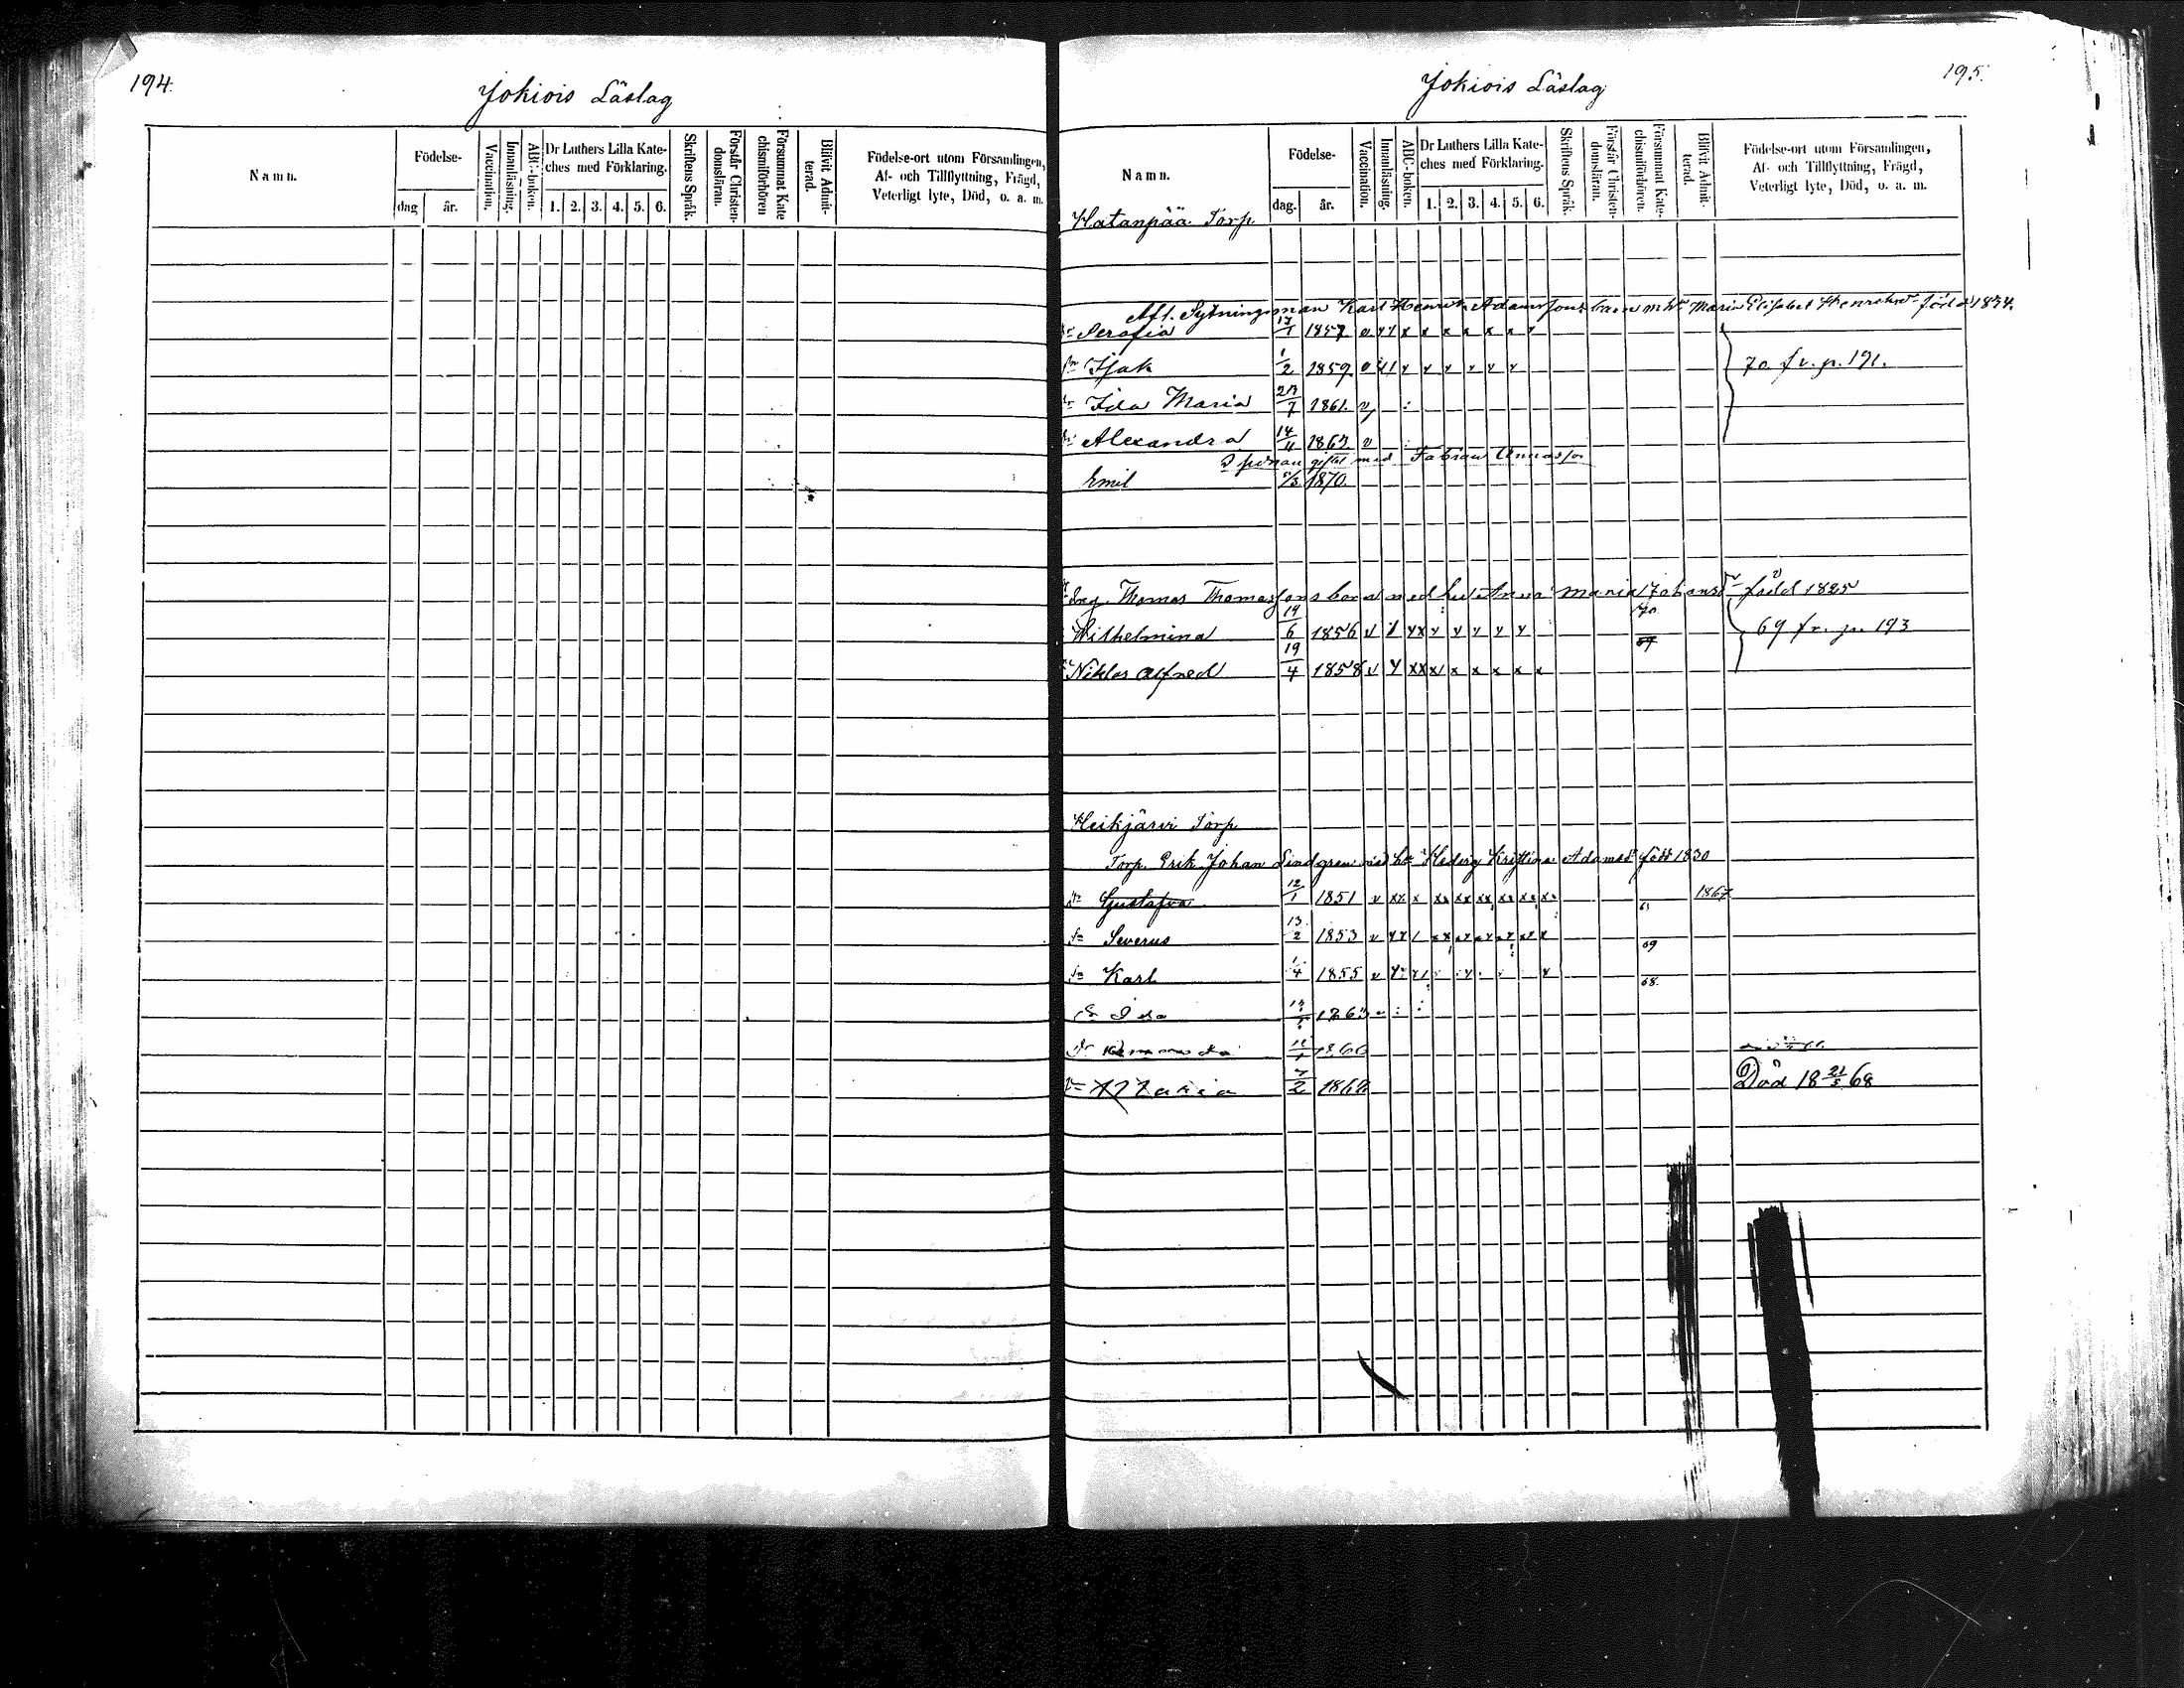 194.
Jokiois Läslag
Namn.
Födelse-
dag
år.
Vaccination.
Innanläsning.
ABC-boken.
Dr Luthers Lilla Kate-
ches med Förklaring.
1. 2. 3. 4. 5. 6.
Skriftens Språk.
Förstår Christen-
domsläran.
Försummat Kate
chismiförhören
Blifvit Admit-
terad.
Födelse-ort utom Församlingen,
Af- och Tillflyttning, Frägd,
Veterligt lyte, Död, o. a. m.
Jokiois Läslag
195.
Namn.
Födelse-
dag.
år.
Vaccination.
Innanläsning.
ABC-boken.
Dr Luthers Lilla Kate-
ches med Förklaring.
1. 2. 3. 4. 5. 6.
Skriftens Språk.
Förstår Christen-
domsläran.
Försummat Kate-
chismiförhören.
Blifvit Admit-
terad.
Födelse-ort utom Församlingen,
Af- och Tillflyttning, Frägd,
Veterligt lyte, Död, o. a. m.
Hatanpää Torp
Afl. Sytningsman Karl Henrik Adamssons barn m h. Maria Elisabet Henriksdr född 1834.
dr Serafia 17/1 1857 v
sn Isak 1/2 1859 70 fr. p. 191.
dr Ida Maria 1861. v
dr Alexandra 14/11 1863 v
gift med Fabian
Emil 5/3 1870.
Ing. Thomas Thomassons barn med hu Anna Maria Johansdr född 1825
Wilhelmina 19/6 1856 v 70 69 69 fr. p. 193
Niklas Alfred 19/4 1858 v
Heikjärvi Torp
Torp. Erik Johan Lindgren med hu Hedvig Kristina Adamsdr född 1830
dr Gustafva 12/1 1851 v 1867
sn Severus 13/2 1853 v 69
sn Karl 1/4 1855 v 68.
dr Ida 1863
dr 1866
dr Maria 7/2 1868 Död 18 21/5 68